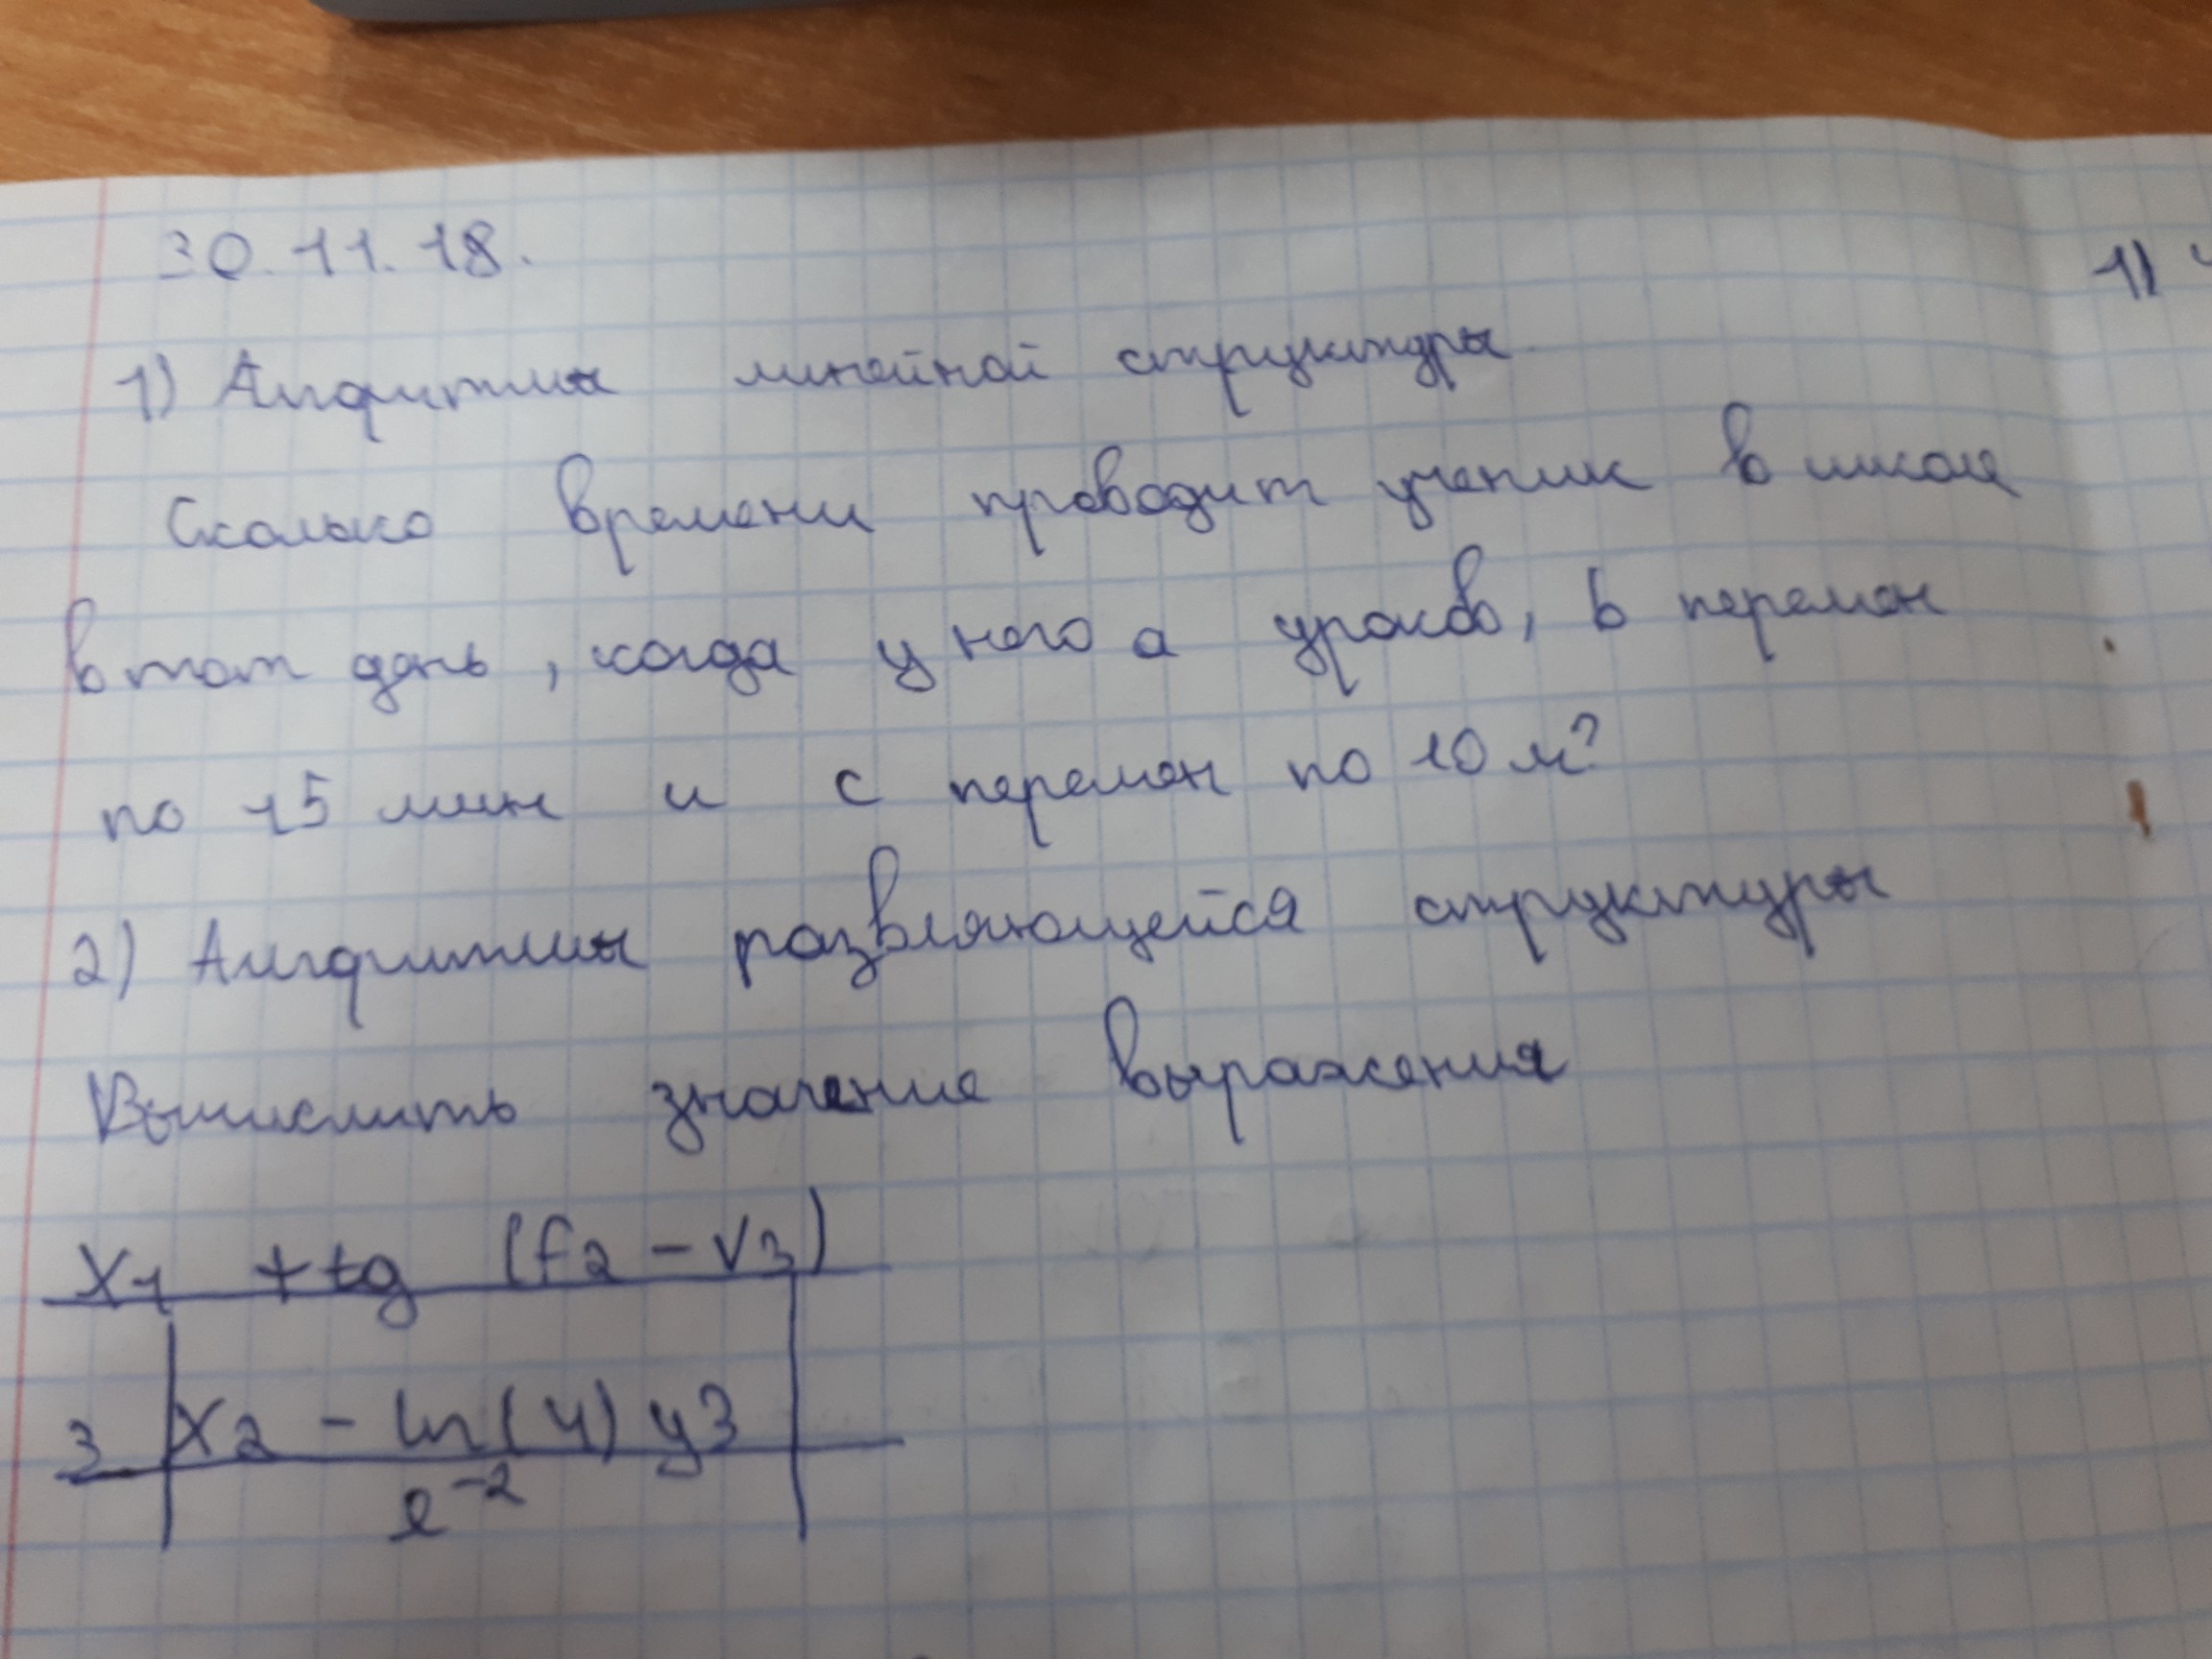 30.11.18.
1) Алгоритмы линейной структуры.
Сколько времени проводит ученик в школе
в тот день, когда у него a уроков, b перемен
по 15 мин и c перемен по 10 м?
2) Алгоритмы разветвляющейся структуры
Вычислить значение выражения
x1 + tg (f2 - √3)
3 |x2 - ln(4) y3|
e^-2
1)